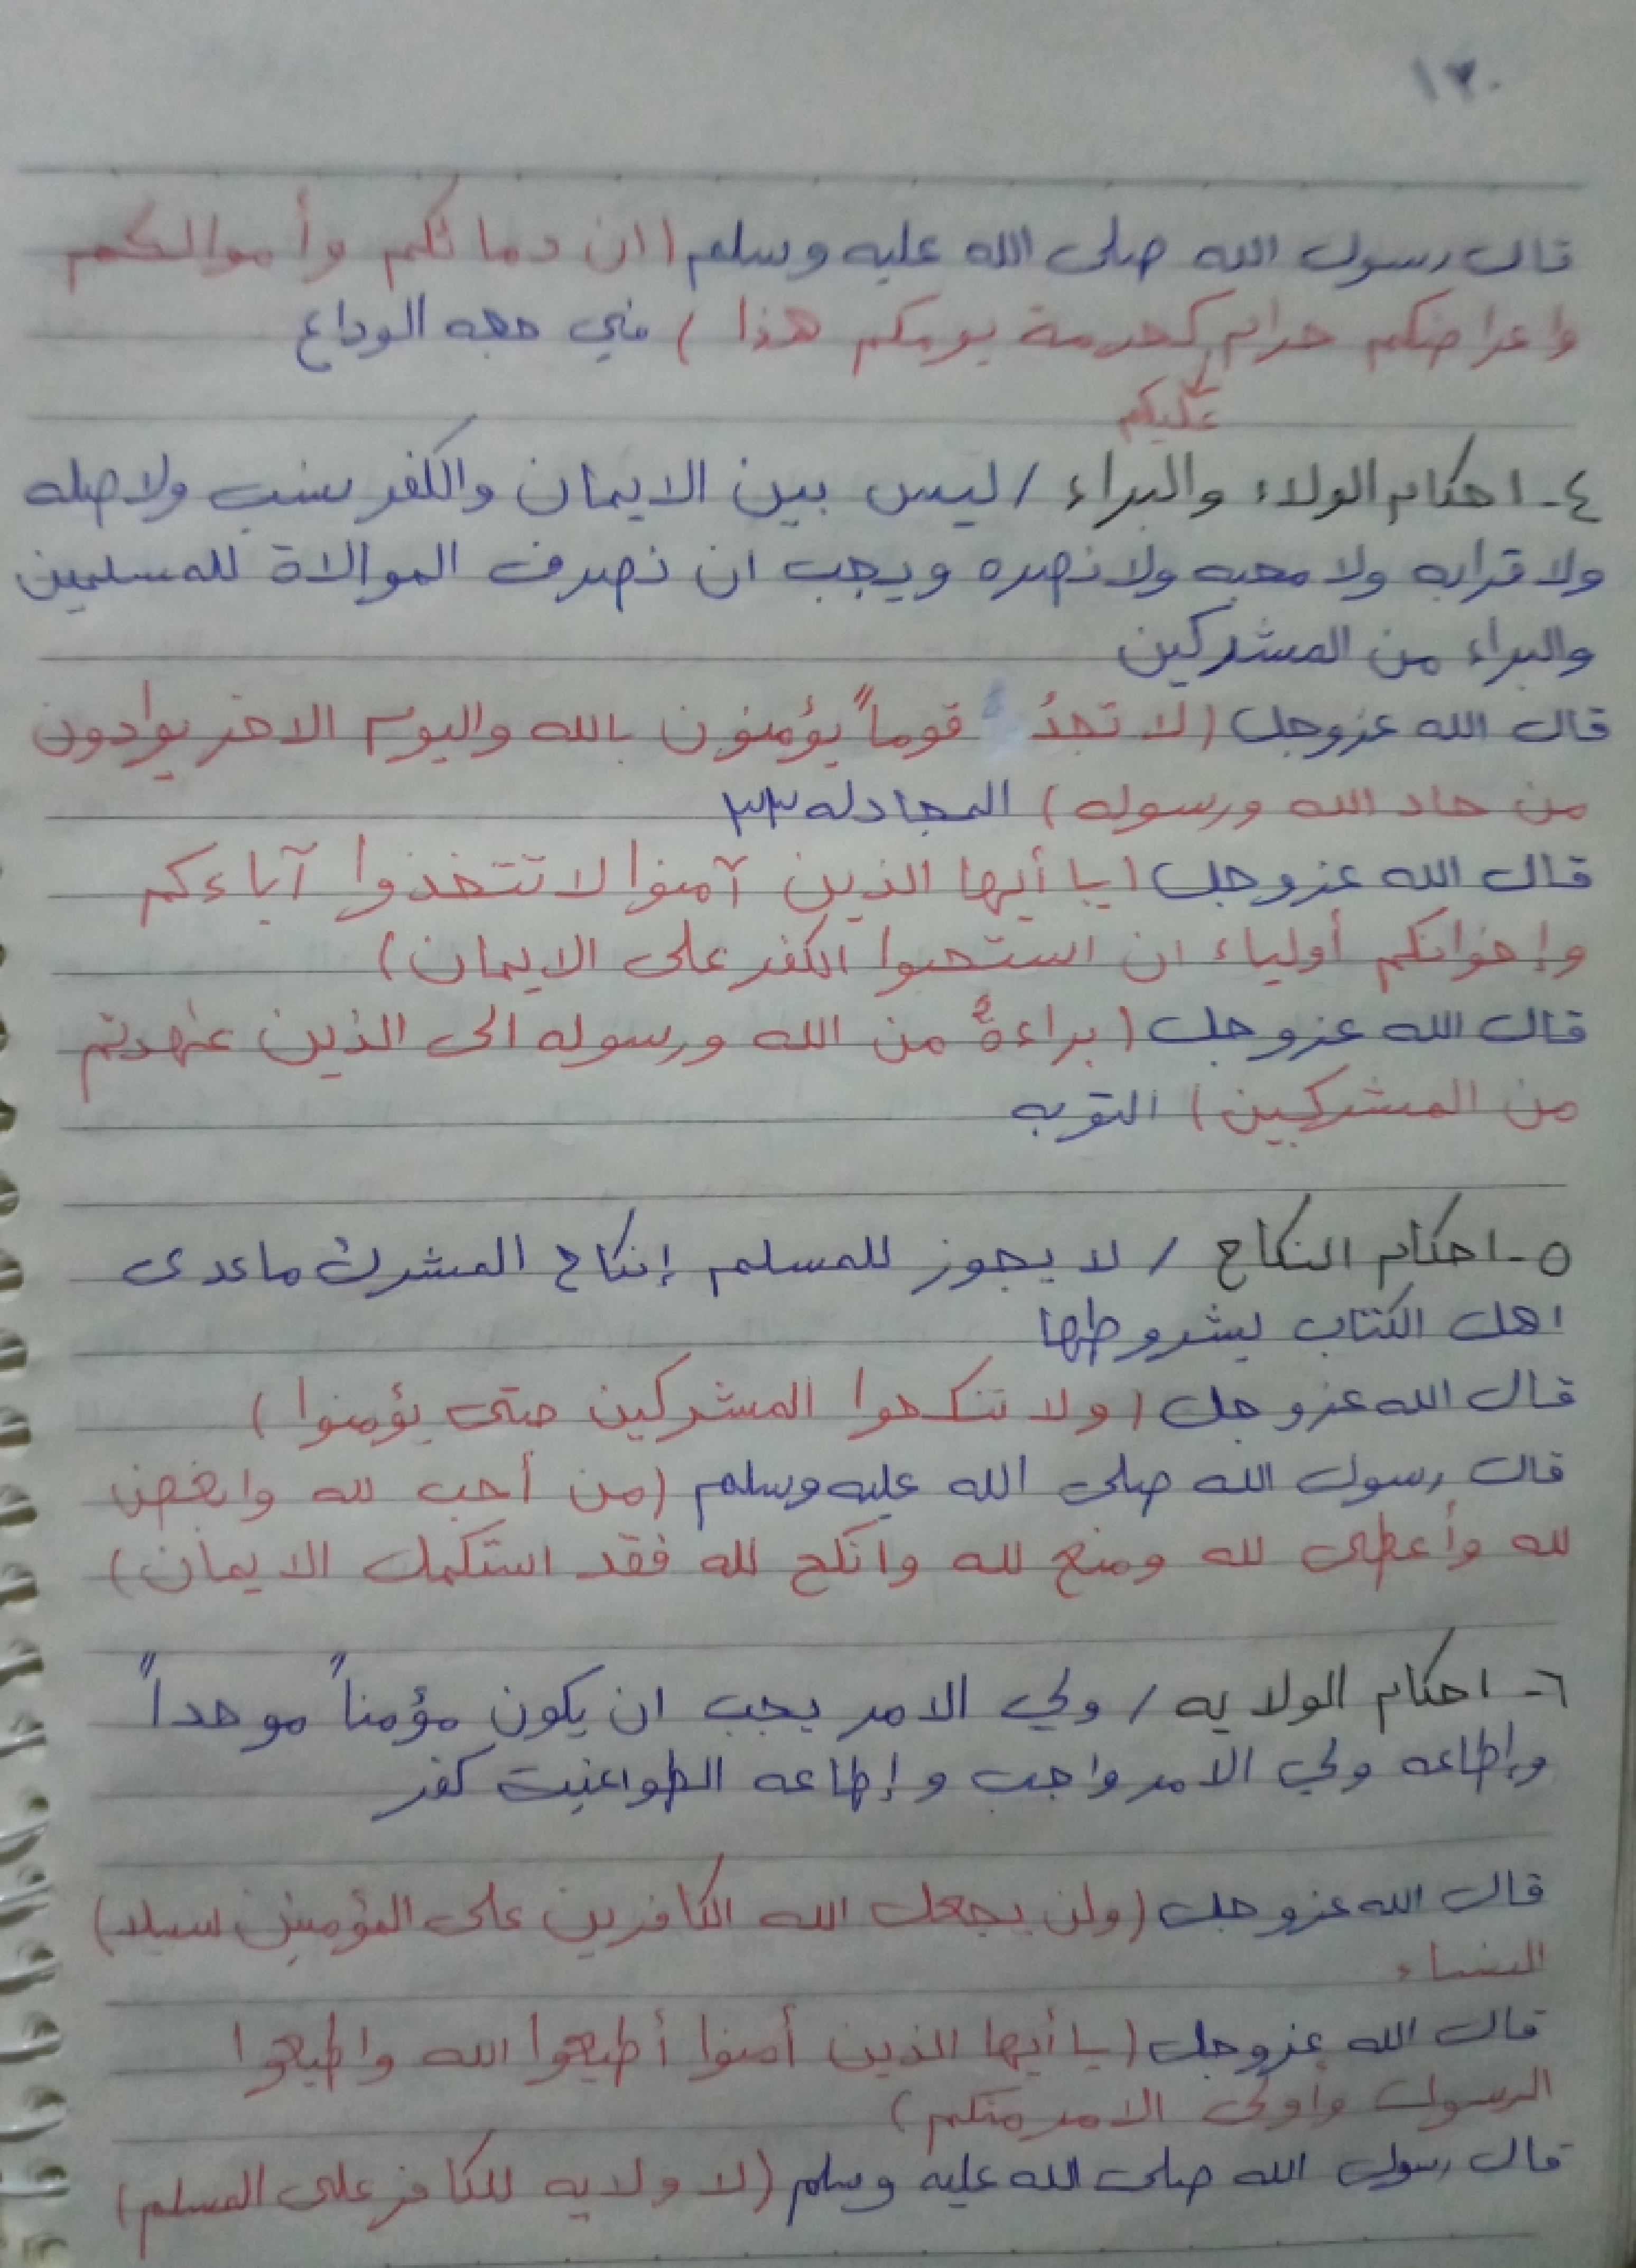 ١٢٠
قال رسول الله صلى الله عليه وسلم (ان دمائكم وأموالكم
واعراضكم حرام كحرمة يومكم هذا) في حجه الوداع
عليكم
٤- احكام الولاء والبراء / ليس بين الايمان والكفر نسب ولا صله
ولا قرابه ولا محبه ولا نصره ويجب ان نصرف الموالاة للمسلمين
والبراء من المشركين
قال الله عزوجل (لا تجدُ قوماً يؤمنون بالله واليوم الاخر يوادون
من حاد الله ورسوله) المجادله ٢٢
قال الله عزوجل (يا أيها الذين آمنوا لا تتخذوا آباءكم
وإخوانكم أولياء ان استحبوا الكفر على الايمان)
قال الله عزوجل (براءةٌ من الله ورسوله الى الذين عهدتم
من المشركين) التوبه
٥- احكام النكاح / لا يجوز للمسلم إنكاح المشرك ماعدى
اهل الكتاب بشروطها
قال الله عزوجل (ولا تنكحوا المشركين حتى يؤمنوا)
قال رسول الله صلى الله عليه وسلم (من أحب لله وابغض
لله وأعطى لله ومنع لله وانكح لله فقد استكمل الايمان)
٦- احكام الولايه / ولي الامر يجب ان يكون مؤمناً موحداً
وإطاعه ولي الامر واجب وإطاعه الطواغيت كفر
قال الله عزوجل (ولن يجعل الله الكافرين على المؤمنين سبيلا)
النساء
قال الله عزوجل (يا أيها الذين أمنوا أطيعوا الله واطيعوا
الرسول وأولى الامر منكم)
قال رسول الله صلى الله عليه وسلم (لا ولايه للكافر على المسلم)